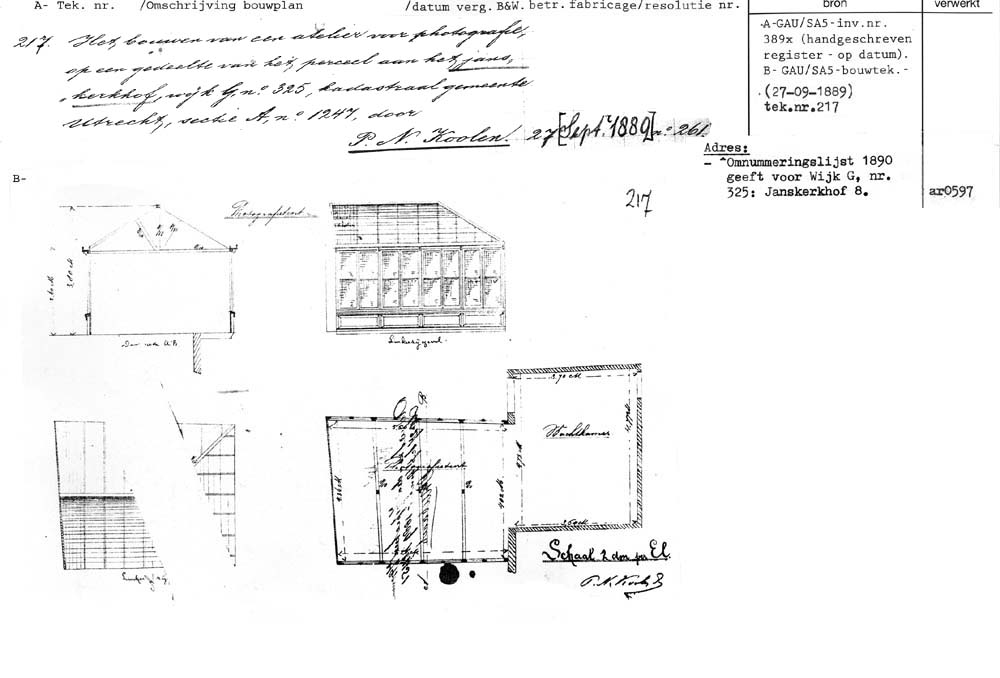 A- Tek. nr. /Omschrijving bouwplan /datum verg. B&W. betr. fabricage/resolutie nr. bron verwerkt
217. Het bouwen van een atelier voor photografie,
op een gedeelte van het perceel aan het Jans,
kerkhof, wijk G, no 325, kadastraal gemeente
Utrecht, sectie A, no 1247, door
P. N. Koolen. 27 [Sept. 1889] no 261.
A-GAU/SA5-inv.nr.
389x (handgeschreven
register - op datum).
B- GAU/SA5-bouwtek.-
(27-09-1889)
tek.nr.217
Adres:
- Omnummeringslijst 1890
geeft voor Wijk G, nr.
325: Janskerkhof 8.
ar0597
B-
217
Photografietent
Linkerzijgevel.
Wachtkamer
Photografietent
Schaal 2 dm per El.
P. N. Koolen